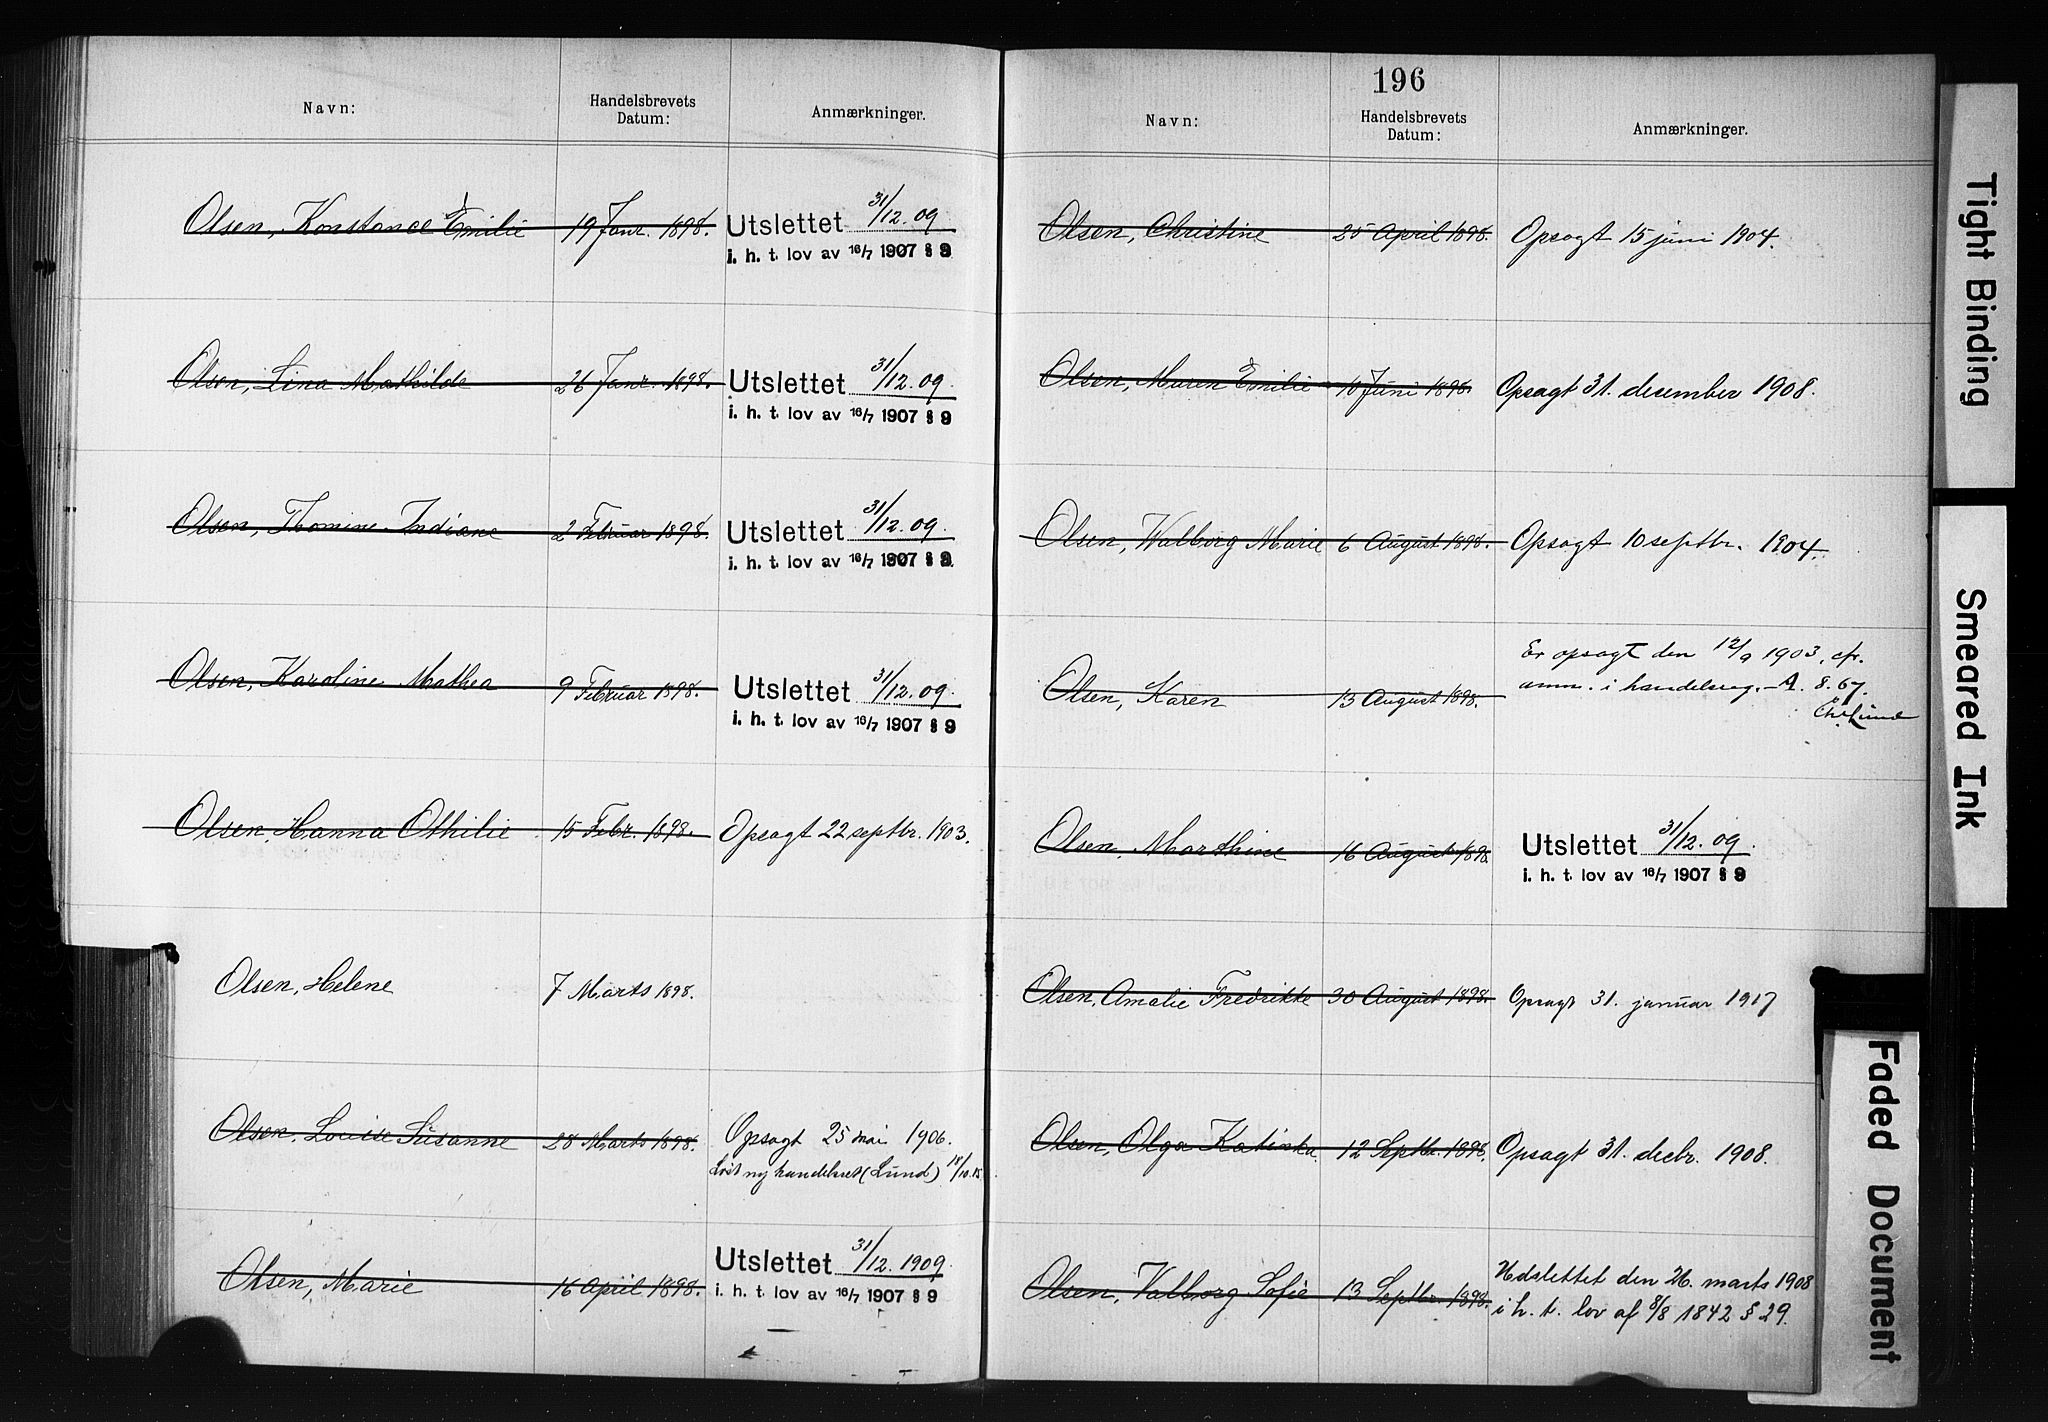 Navn:
Handelsbrevets
Datum:
Anmærkninger.
Olsen, Konstance Emilie
19 Janr. 1898.
Utslettet 31/12. 09
i. h. t. lov av 16/7 1907 § 9
Olsen, Lina Mathilde
26 Janr. 1898.
Utslettet 31/12. 09.
i. h. t. lov av 16/7 1907 § 9
Olsen, Thomine Indiane
2 Februar 1898.
Utslettet 31/12. 09.
i. h. t. lov av 16/7 1907 § 9
Olsen, Karoline Mathea
9 Februar 1898.
Utslettet 31/12. 09.
i. h. t. lov av 16/7 1907 § 9
Olsen, Hanna Othilie
15 Febr. 1898.
Opsagt 22 septbr. 1903.
Olsen, Helene
7 Marts 1898.
Olsen, Louise Susanne
28 Marts 1898.
Opsagt 25 mai 1906.
Løst ny handelsret (Lund) 18/10.15.
Olsen, Marie
16 April 1898.
Utslettet 31/12. 1909
i. h. t. lov av 16/7 1907 § 9
196
Navn:
Handelsbrevets
Datum:
Anmærkninger.
Olsen, Christine
25 April 1898.
Opsagt 15 juni 1904.
Olsen, Maren Emilie
10 Juni 1898.
Opsagt 31. desember 1908.
Olsen, Walborg Marie
6 August 1898.
Opsagt 10 septbr. 1904.
Olsen, Karen
13 August 1898.
Er opsagt den 12/9 1903, cfr.
anm. i handelsreg. A. 8. 67.
Olsen, Marthine
16 August 1898.
Utslettet 31/12. 09.
i. h. t. lov av 16/7 1907 § 9
Olsen, Amalie Fredrikke
30 August 1898.
Opsagt 31. januar 1917
Olsen, Olga Katinka
12 Septbr. 1898.
Opsagt 31. decbr. 1908.
Olsen, Valborg Sofie
13 Septbr. 1898.
Udslettet den 26. marts 1908
i h. t. lov af 8/8 1842 § 29.
Tight Binding
Smeared Ink
Faded Document